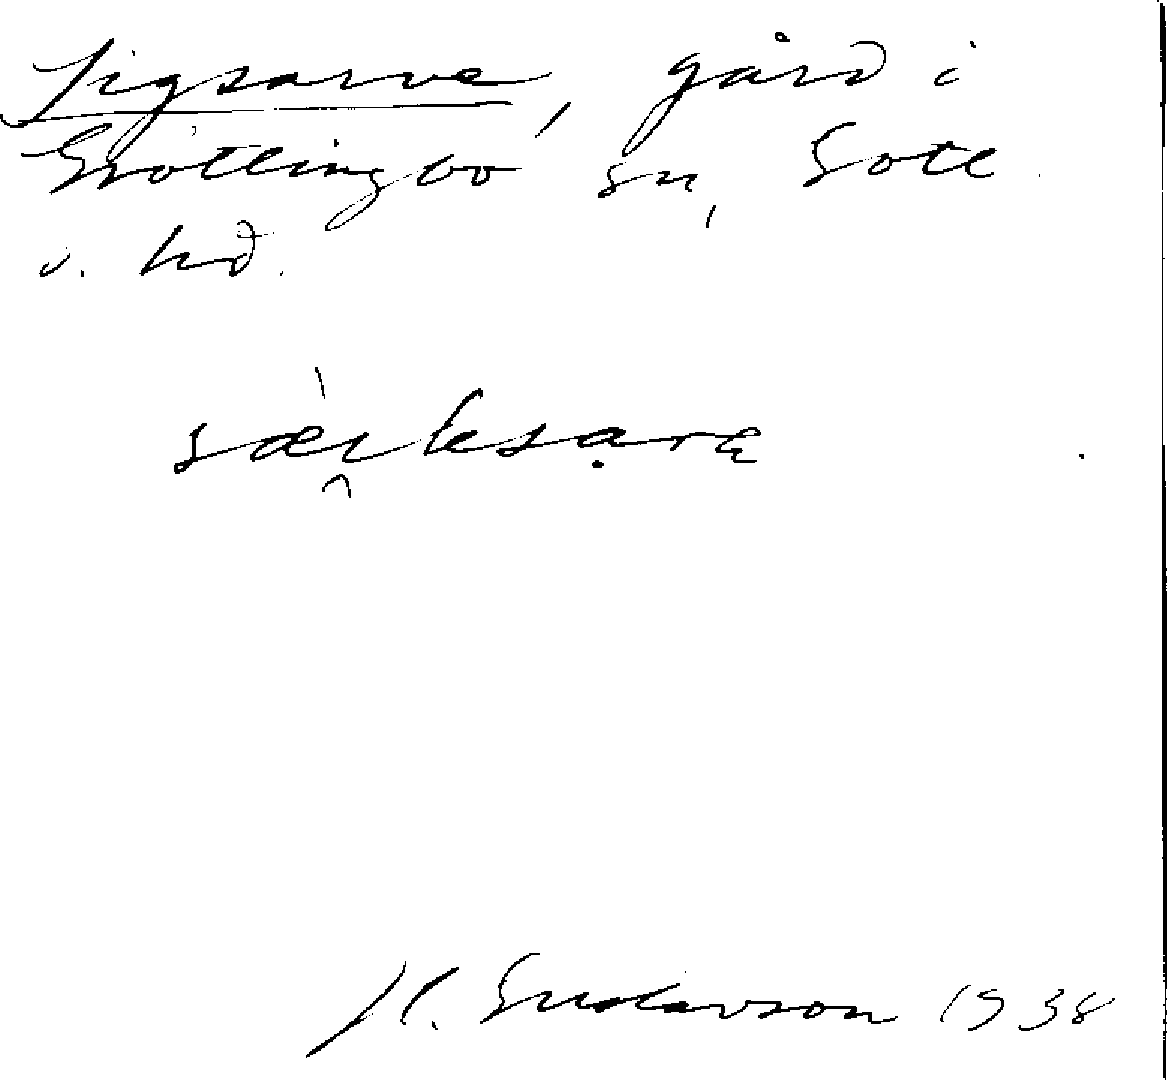 Sigsarve, gård i
Gröttlingbo sn, Gotl
s. hd.
sæi̯ksạrɛ
H. Gustavson 1938